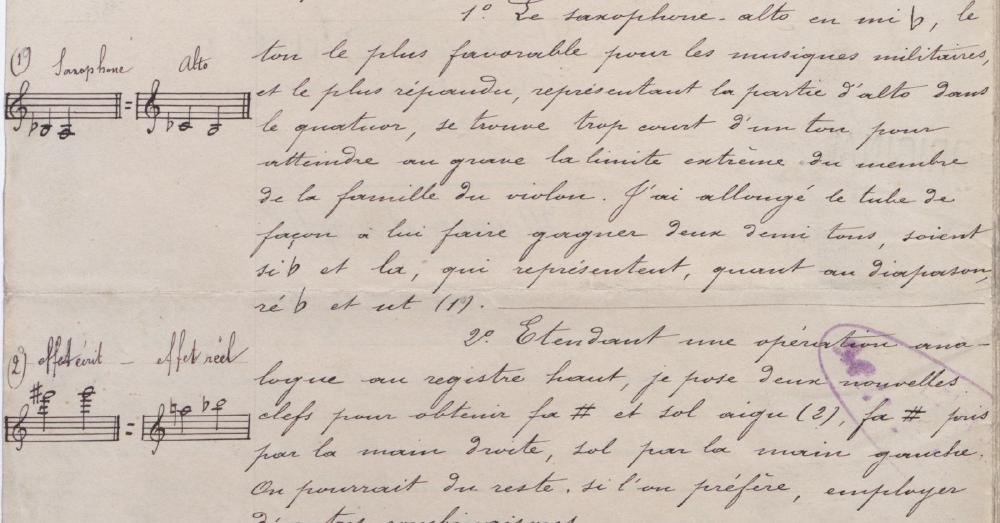 1º Le saxophone-alto en mi ♭, le
(1) Saxophone Alto
ton le plus favorable pour les musiques militaires,
et le plus répandu, représentant la partie d'alto dans
le quatuor, se trouve trop court d'un ton pour
atteindre au grave la limite extrême du membre
de la famille du violon. J'ai allongé le tube de
façon à lui faire gagner deux demi tons, soient
si ♭ et la, qui représentent, quant au diapason,
ré ♭ et ut (1).
2º Etendant une opération ana-
(2) effet écrit — effet réel
logue au registre haut, je pose deux nouvelles
clefs pour obtenir fa # et sol aigu (2), fa # pris
par la main droite, sol par la main gauche.
On pourrait du reste, si l'on préfère, employer
d'autres combinaisons